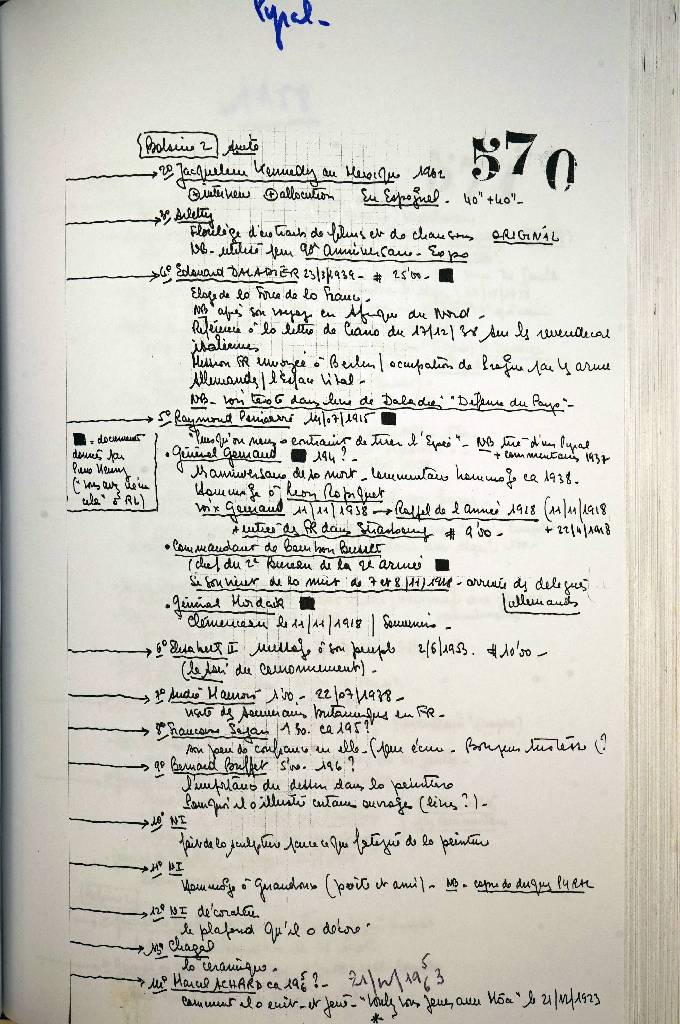 Pyral -
Bobine 2 suite
570
2° Jacqueline Kennedy au Mexique 1962
interview allocution En Espagnol - 40" + 40" -
3° Arletty
Florilège d'extraits de films et de chansons ORIGINAL
NB - utilisé pour 90e anniversaire - Expo
4° Edouard DALADIER 23/3/1939 - # 25'00 -
Eloge de la Force de la France -
NB après son voyage en Afrique du Nord -
Référence à la lettre de Ciano du 17/12/38 sur les revendicat
italiennes
Mission FR envoyée à Berlin / occupation de Prague par ls armée
Allemandes / l'espace vital -
NB - voir texte dans livre de Daladier "Défense du Pays" -
5° Raymond Poincaré 14/07/1915
"Puisqu'on nous a contraint de tirer l'Epée" - NB tiré d'un Pyral
+ commentaires 1937
= document
donné par
• Général Gouraud 194 ?
anniversaire de sa mort - commentaire hommage ca 1938 -
Hommage à Léon
voix Gouraud 11/11/1938 → Rappel de l'Année 1918 (11/11/1918
+ entrée des FR dans Strasbourg # 9'00 - + 22/11/1918
• Commandant de Bourbon Busset
(chef du 2e Bureau de la 2e armée
Se souvient de la nuit de 7 et 8/11/1918 - arrivée ds délégués
allemands
• Général Mordacq
Clémenceau le 11/11/1918 / Souvenir -
6° Elisabeth II message à son peuple 2/6/1953. # 10'00 -
(le soir du couronnement) -
7° André Maurois 1'00 - 22/07/1938 -
visite ds souverains britanniques en FR -
8° Françoise Sagan 1'30. ca 195?
son peu de confiance en elle - (pour écrire - Bonjour tristesse (?
9° Bernard Buffet 5'00 - 196 ?
L'importance du dessin dans la peinture
Pourquoi il a illustré certains ouvrages (livres ?) -
10° NI
fait de la sculpture parce que fatigué de la peinture
11° NI
Hommage à (poète et ami) - NB - copie de disques PYRAL
12° NI décorateur
le plafond qu'il a décoré -
13° Chagal
la céramique -
14° Marcel ACHARD ca 196 ? - 21/
comment il a écrit - et joué - "Voulez vous jouer avec Môa" le 21/12/1923
*